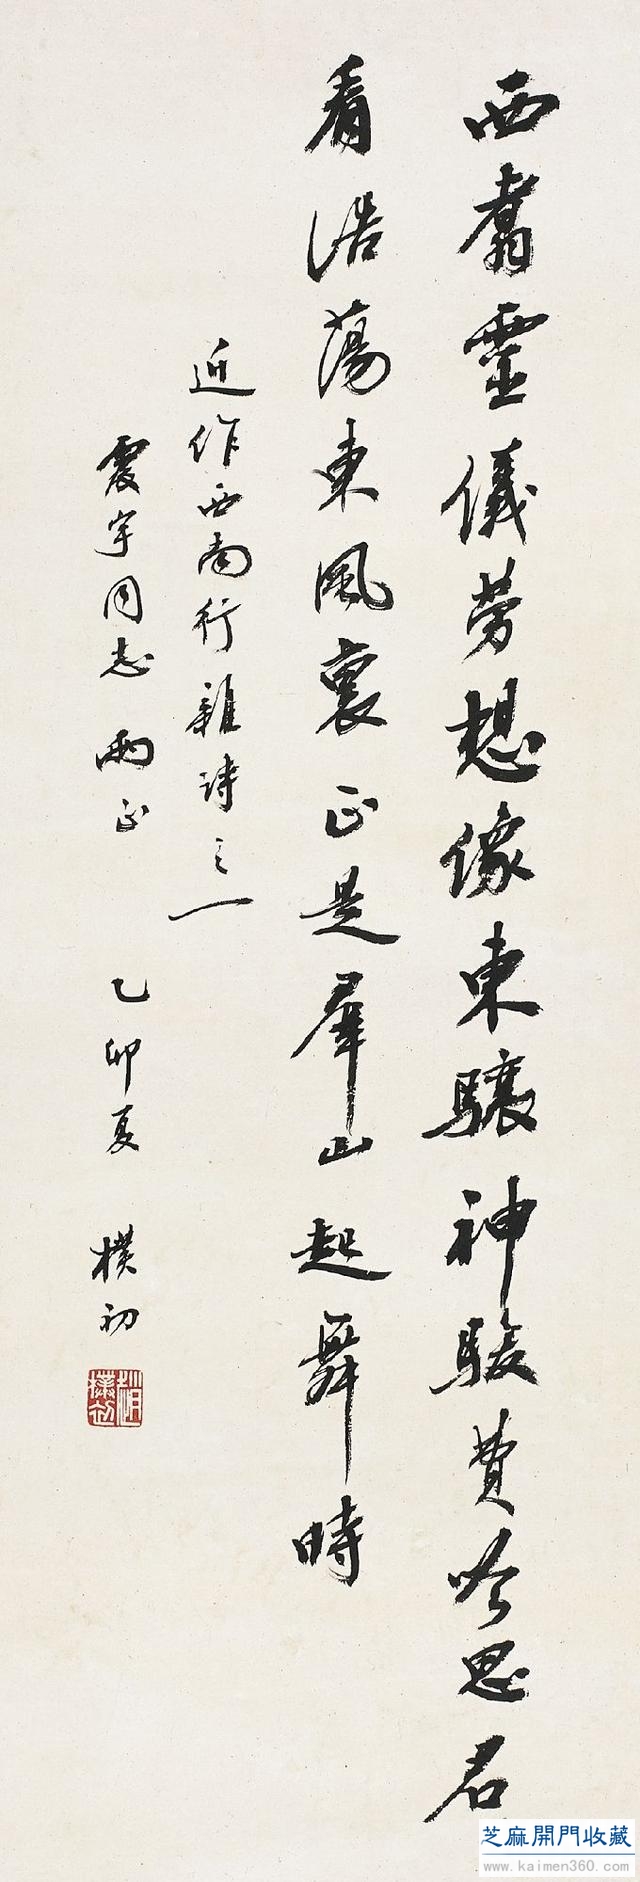 西翥靈儀勞想像東驤神駿費吟思君
看浩蕩東風裏正是羣山起舞時
近作西南行雜詩之一
震宇同志兩正 乙卯夏 樸初
趙樸初
芝麻開門收藏
www.kaimen360.com